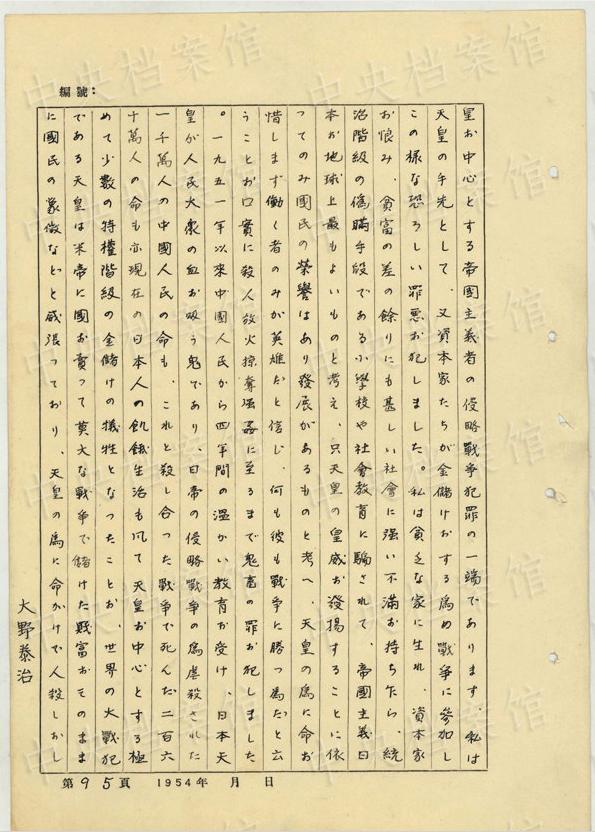 編號：
皇お中心とする帝國主義者の侵略戰爭犯罪の一端であります、私は
天皇の手先として、又資本家たちが金儲けおする為め戰爭に參加し
この様な恐ろしい罪悪お犯しました。私は貧乏な家に生れ、資本家
お恨み、貧富の差の餘りにも甚しい社會に強い不滿お持ちたら、統
治階級の偽瞞手段である小學校や社會教育に騙されて、帝國主義日
本お地球上最もよいものと考え、只天皇の皇威お發揚することに依
つてのみ國民の榮譽はあり發展があるものと考へ、天皇の為に命お
惜します働く者のみが英雄だと信じ、何も彼も戰爭に勝つ為だと云
うことお口實に殺人放火掠奪强姦に至るまで鬼畜の罪お犯しました
。一九五一年以來中國人民から四年間の温かい教育お受け、日本天
皇が人民大衆の血お吸う鬼であり、日帝の侵略戰爭の為虐殺された
一千萬人の中國人民の命も、これと殺し合った戰爭で死んだ二百六
十萬人の命も亦現在の日本人の飢餓生活も凡て天皇お中心とする極
めて少數の特權階級の金儲けの犠牲となったことお、世界の大戰犯
である天皇は米帝に國お賣って莫大な戰爭で儲けた財富おそのまま
に國民の象徴などと威張っており、天皇の為に命かけで人殺しおし
大野泰治
第95頁 1954年 月 日
中央档案馆